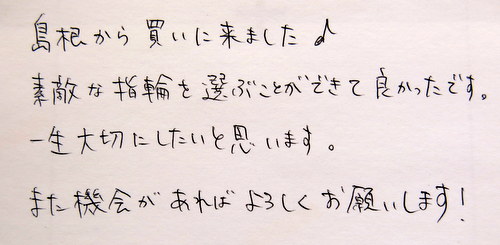 島根から買いに来ました♪
素敵な指輪を選ぶことができて良かったです。
一生大切にしたいと思います。
また機会があればよろしくお願いします!